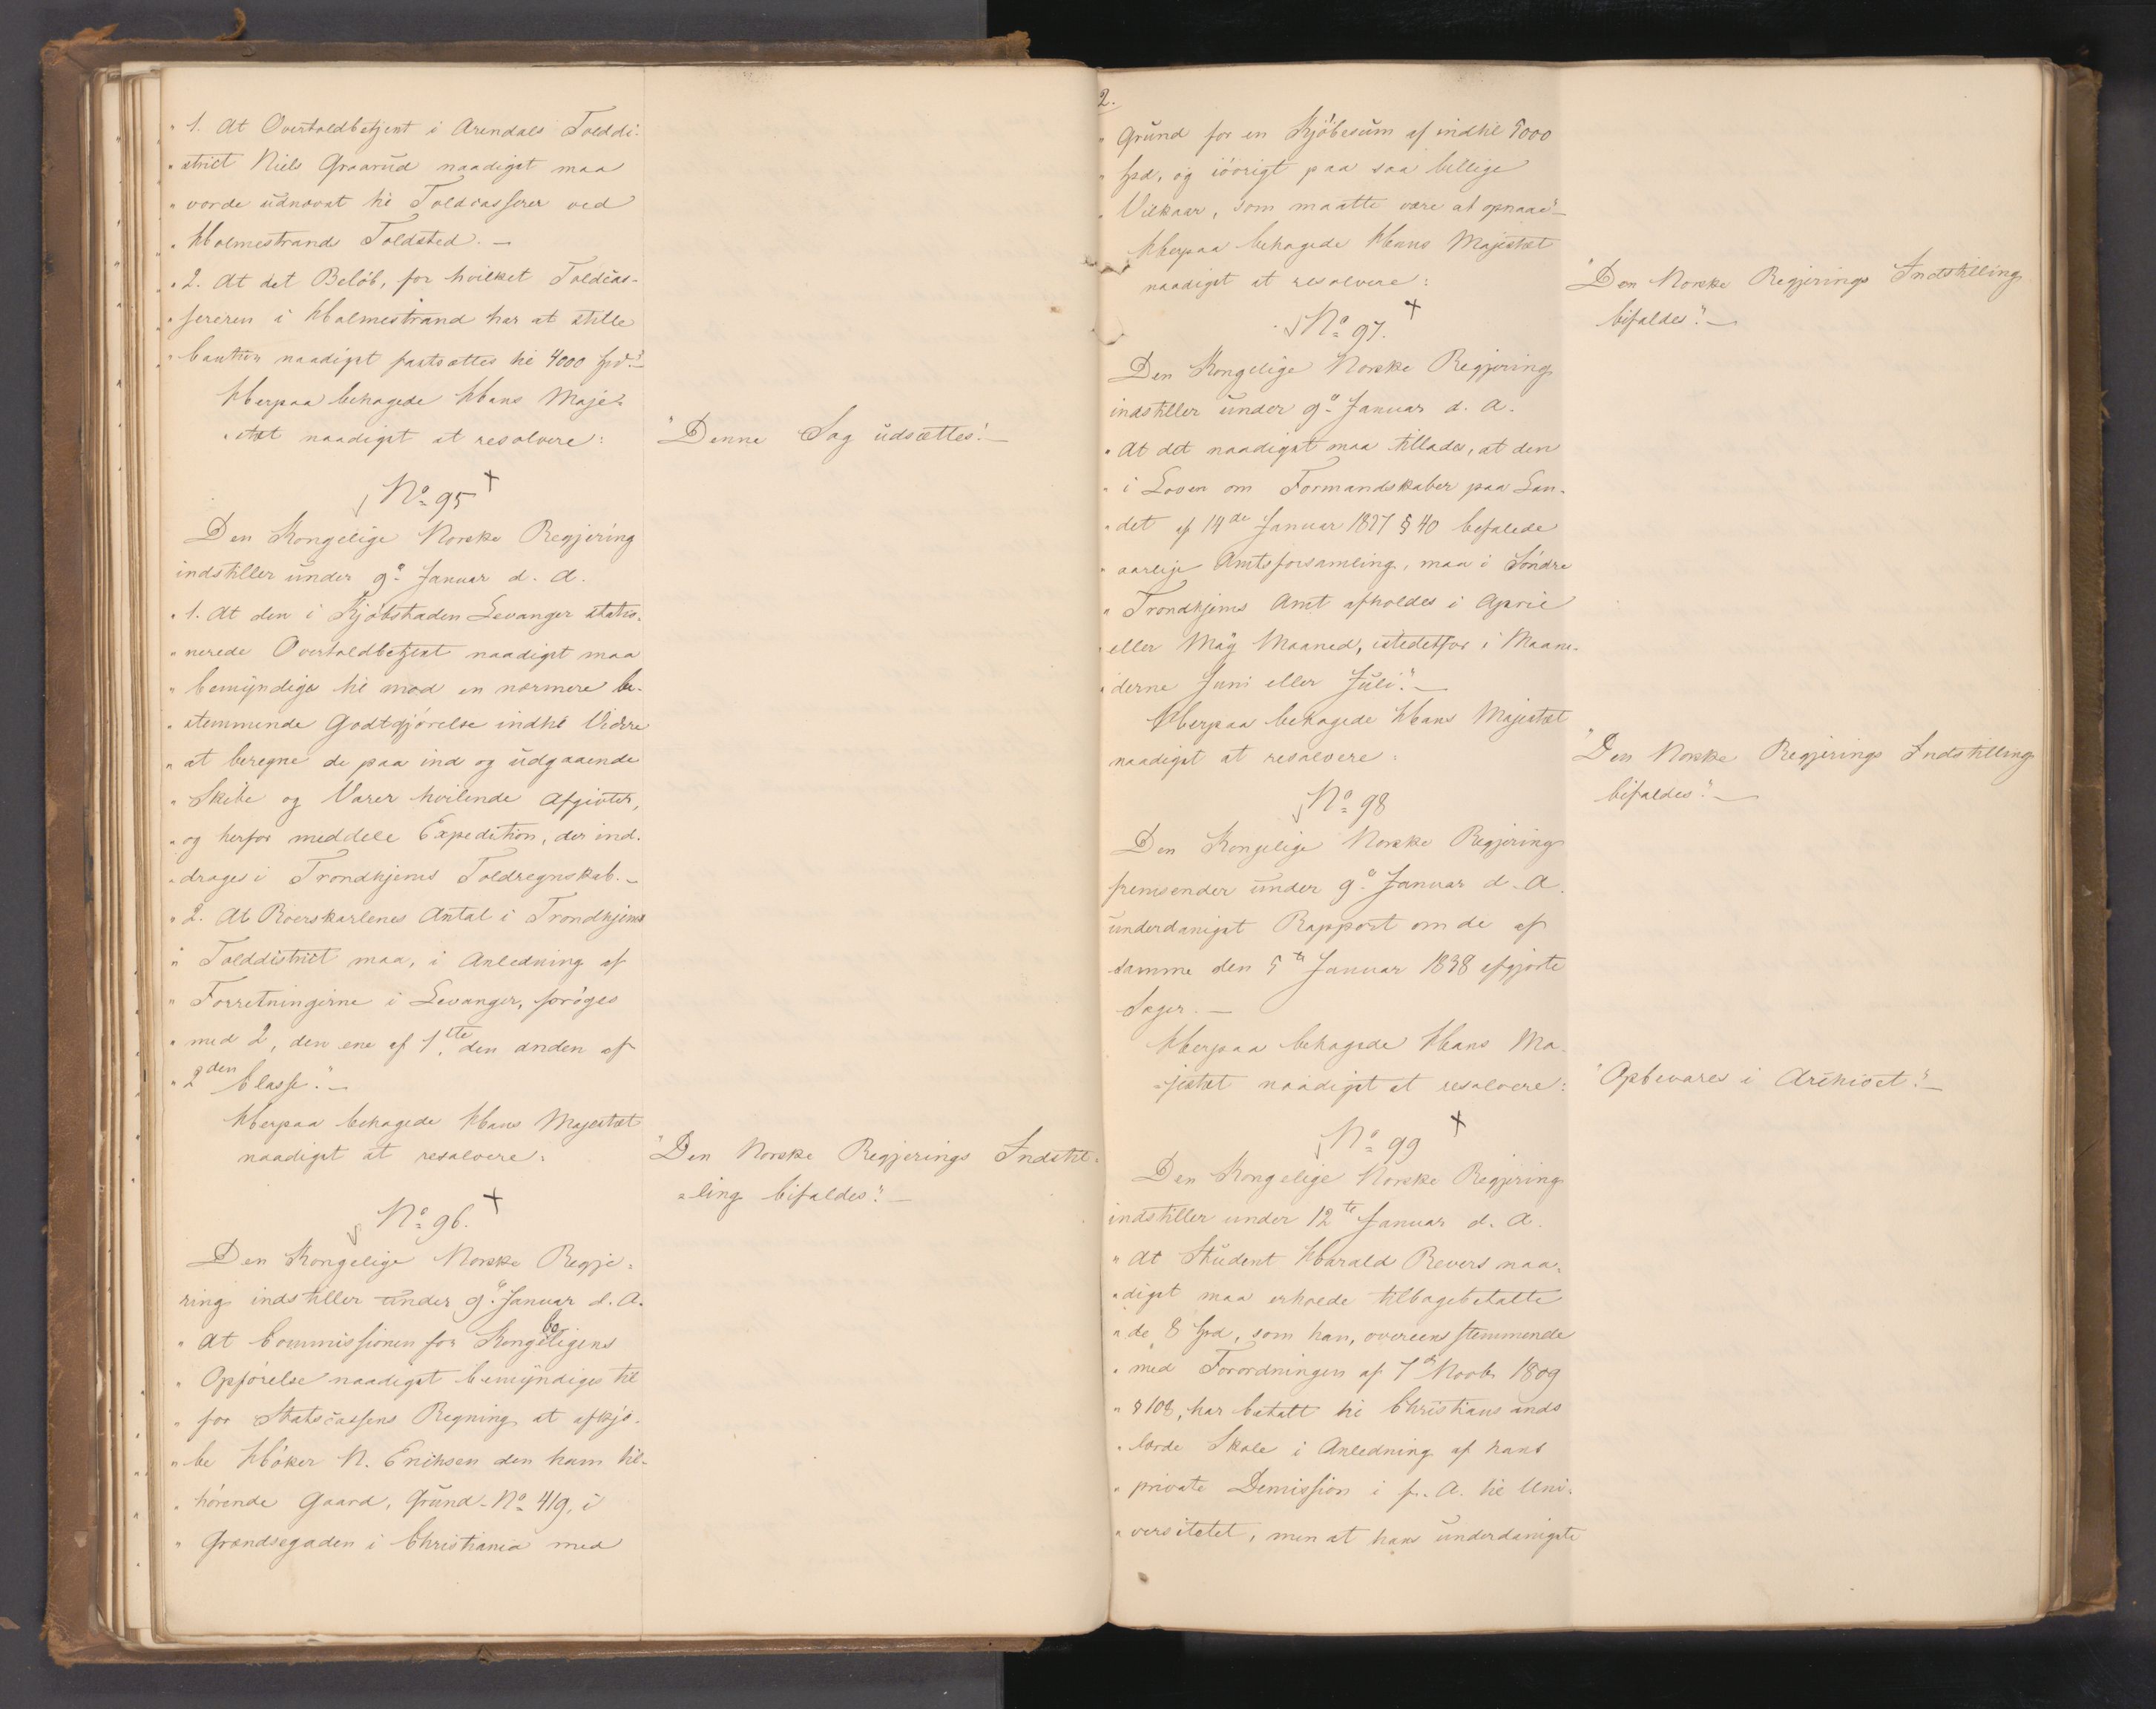 "1. At Overtoldbetjent i Arendals Tolddi-
"strict Niels Graarud naadigst maa
"vorde udnævnt til Toldcasserer ved
"Holmestrands Toldsted. —
"2. At det Beløb, for hvilket Toldcas-
"sereren i Holmestrand har at stille
"Caution naadigst fastsættes til 4000 Spd." —
Herpaa behagede Hans Maje-
stæt naadigst at resolvere:
"Denne Sag udsættes." —
No 95 +
Den Kongelige Norske Regjering
indstiller under 9de Januar d. A.
"1. At den i Kjøbstaden Levanger statio-
"nerede Overtoldbetjent naadigst maa
"bemyndiges til mod en nærmere be-
"stemmende Godtgjørelse indtil Videre
"at beregne de paa ind og udgaaende
"Skibe og Varer hvilende Afgivter,
"og herfor meddele Expedition, der ind-
"drages i Trondhjems Toldregnskab. —
"2. At Roerskarlenes Antal i Trondhjems
"Tolddistrict maa, i Anledning af
"Forretningerne i Levanger, forøges
"med 2, den ene af 1ste den anden af
"2den Classe." —
Herpaa behagede Hans Majestæt
naadigst at resolvere:
"Den Norske Regjerings Indstil-
ling bifaldes." —
No 96. +
Den Kongelige Norske Regje-
ring indstiller under 9de Januar d. A.
"At Commissionen for Kongeboligens
"Opførelse naadigst bemyndiges til
"for Statscassens Regning at afkjø-
"be Høker N. Erichsen den ham til-
"hørende Gaard, Grund-No 419, i
"Grændsegaden i Christiania med
2.
"Grund for en Kjøbesum af indtil 5000
"Spd, og iøvrigt paa saa billige
"Vilkaar, som maatte være at opnaae" —
Herpaa behagede Hans Majestæt
naadigst at resolvere:
"Den Norske Regjerings Indstilling
bifaldes." —
No 97. +
Den Kongelige Norske Regjering
indstiller under 9de Januar d. A.
"At det naadigst maa tillades, at den
"i Loven om Formandskaber paa Lan-
"det af 14de Januar 1837 § 40 befalede
"aarlige Amtsforsamling, maa i Søndre
"Trondhjems Amt afholdes i April
"eller May Maaned, istedetfor i Maane-
"derne Juni eller Juli." —
Herpaa behagede Hans Majestæt
naadigst at resolvere:
"Den Norske Regjerings Indstilling
bifaldes." —
No 98
Den Kongelige Norske Regjering
fremsender under 9de Januar d. A.
underdanigst Rapport om de af
samme den 5te Januar 1838 afgjorte
Sager. —
Herpaa behagede Hans Ma-
jestæt naadigst at resolvere:
"Opbevares i Archivet." —
No 99 +
Den Kongelige Norske Regjering
indstiller under 12te Januar d. A.
"At Student Harald Revers naa-
"digst maa erholde tilbagebetalte
"de 8 Spd, som han, overeensstemmende
"med Forordningen af 7de Novbr 1809
"§ 108, har betalt til Christiansands
"lærde Skole i Anledning af hans
"private Demission i f. A. til Uni-
"versitetet, men at hans underdanigste